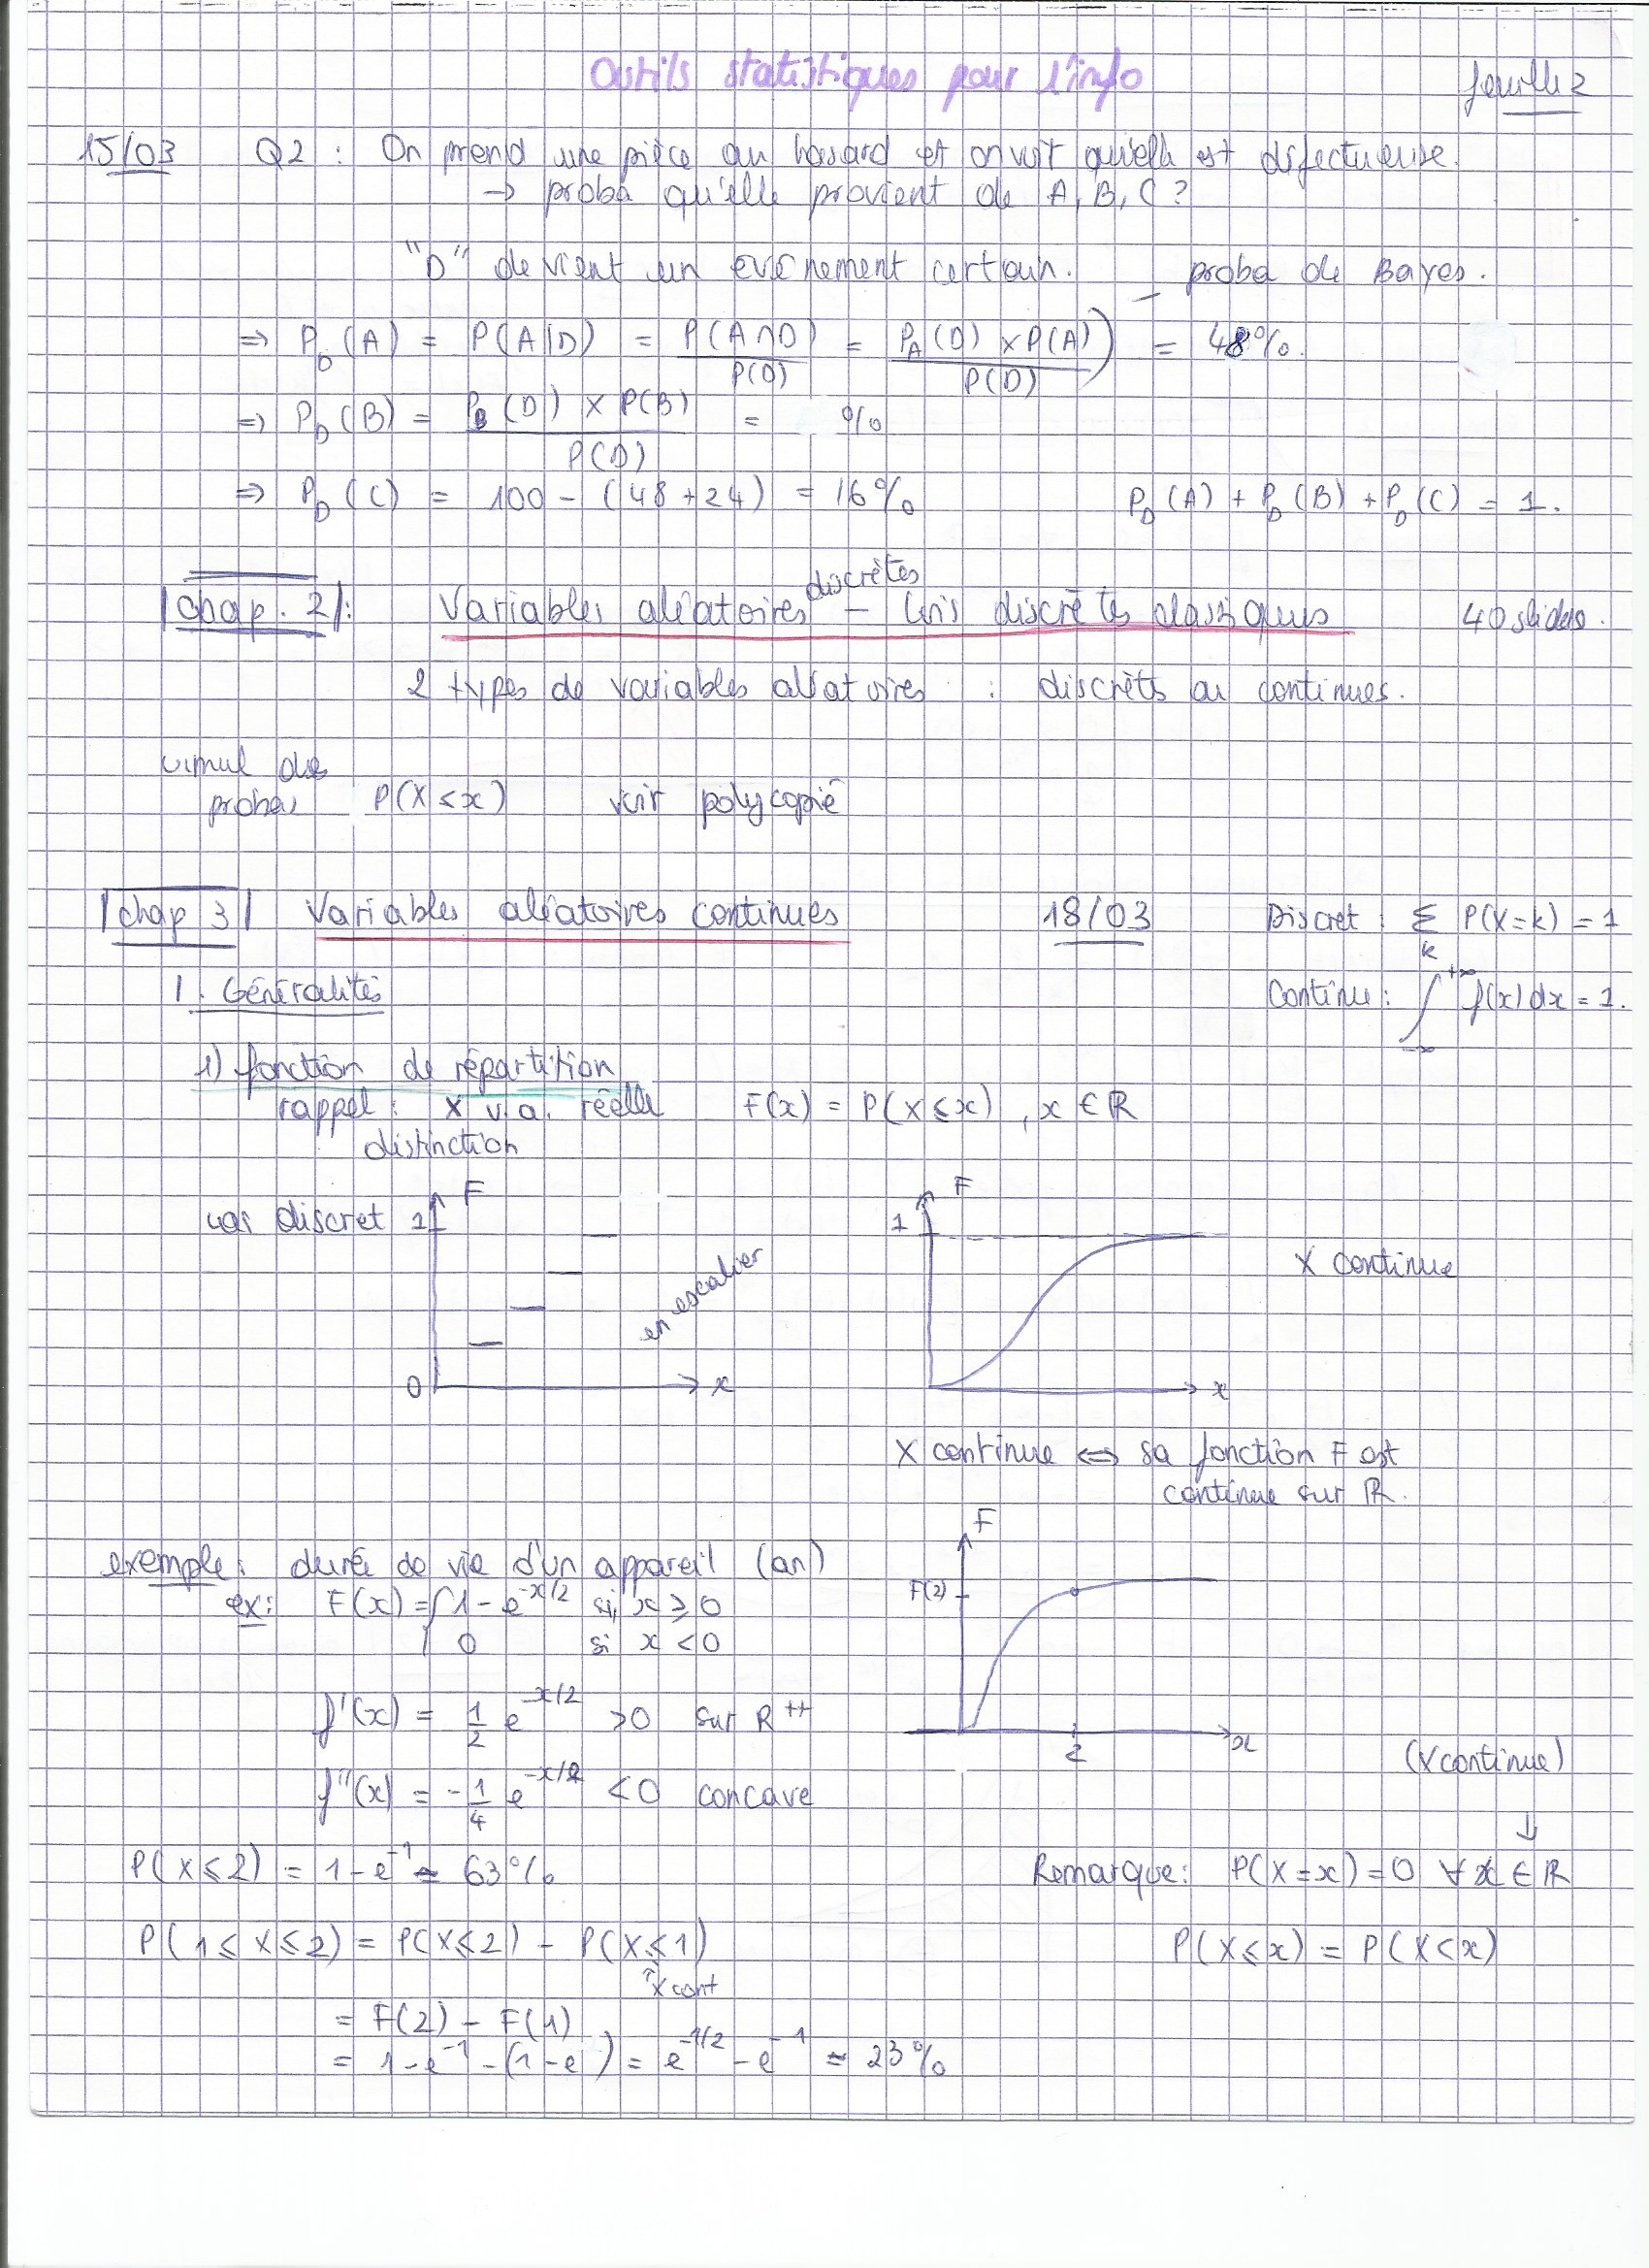 Outils statistiques pour l'info
feuille 2
15/03 Q2 : On prend une pièce au hasard et on voit qu'elle est défectueuse.
→ proba qu'elle provient de A, B, C ?
"D" devient un événement certain. proba de Bayes.
⇒ P_D(A) = P(A|D) = P(A∩D)/P(D) = (P_A(D) × P(A))/P(D) = 48%.
⇒ P_D(B) = (P_B(D) × P(B))/P(D) = %
⇒ P_D(C) = 100 - (48+24) = 16% P_D(A) + P_D(B) + P_D(C) = 1.
|chap. 2| : Variables aléatoires discrètes - Lois discrètes classiques 40 slides.
2 types de variables aléatoires : discrèts ou continues.
cumul des
probas P(X≤x) voir polycopié
|chap 3| Variables aléatoires continues 18/03 Discret : Σ_k P(X=k) = 1
1. Généralités Continu : ∫_{-∞}^{+∞} f(x)dx = 1.
1) fonction de répartition
rappel : X v.a. réelle F(x) = P(X≤x), x ∈ ℝ
distinction
cas discret 1 F
en escalier
0 x
1 F
X continue
x
X continue ⇔ sa fonction F est
continue sur ℝ.
exemple : durée de vie d'un appareil (an)
ex : F(x) = { 1 - e^{-x/2} si x ≥ 0
0 si x < 0
F
F(2)
2 x
f'(x) = 1/2 e^{-x/2} >0 sur R^{++}
(X continue)
f''(x) = -1/4 e^{-x/2} <0 concave
↓
P(X≤2) = 1 - e^{-1} ≃ 63% Remarque : P(X=x) = 0 ∀x ∈ ℝ
P(1≤X≤2) = P(X≤2) - P(X≤1) P(X≤x) = P(X<x)
↑ X cont
= F(2) - F(1)
= 1 - e^{-1} - (1 - e ) = e^{-1/2} - e^{-1} ≃ 23%